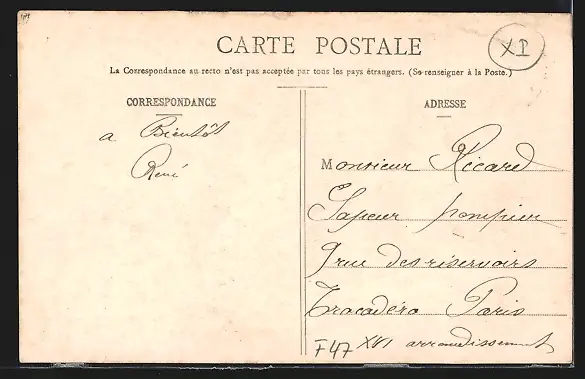 XI
CARTE POSTALE
La Correspondance au recto n'est pas acceptée par tous les pays étrangers. (Se renseigner à la Poste.)
CORRESPONDANCE
a Bientôt
René
ADRESSE
Monsieur Ricard
Sapeur pompier
9 rue des réservoirs
Trocadéro Paris
XVI arrondissement
F47